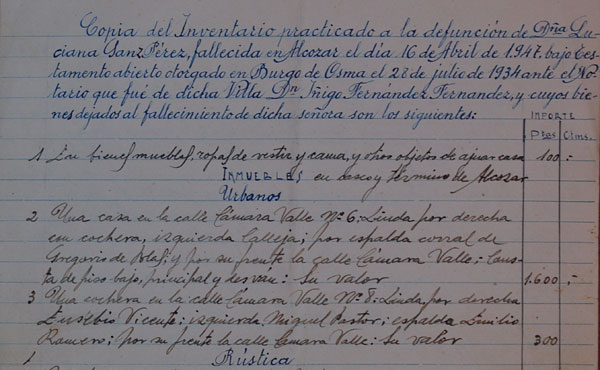 Copia del Inventario practicado a la defunción de Dña Lu-
ciana Sanz Pérez, fallecida en Alcozar el día 16 de Abril de 1.947, bajo Tes-
tamento abierto otorgado en Burgo de Osma el 28 de julio de 1934 ante el No-
tario que fué de dicha Villa Dn Iñigo Fernández Fernandez, y cuyos bie-
nes dejados al fallecimiento de dicha señora son los siguientes:
IMPORTE
Ptas Ctms.
1 En bienes muebles, ropas de vestir y cama, y otros objetos de ajuar casa 100 :-
INMUEBLES en casco y término de Alcozar
Urbanos
2 Una casa en la calle Cámara Valle Nº 6: Linda por derecha
con cochera, izquierda Calleja; por espalda corral de
Gregorio de Blas; y por su frente la calle Cámara Valle: Cons-
ta de piso bajo, principal y desván: Su valor 1.600 ,-
3 Una cochera en la calle Cámara Valle Nº 8: Linda por derecha
Eusebio Vicente; izquierda Miguel Pastor; espalda Emilio
Romero; por su frente la calle Cámara Valle: su valor 300
Rústica